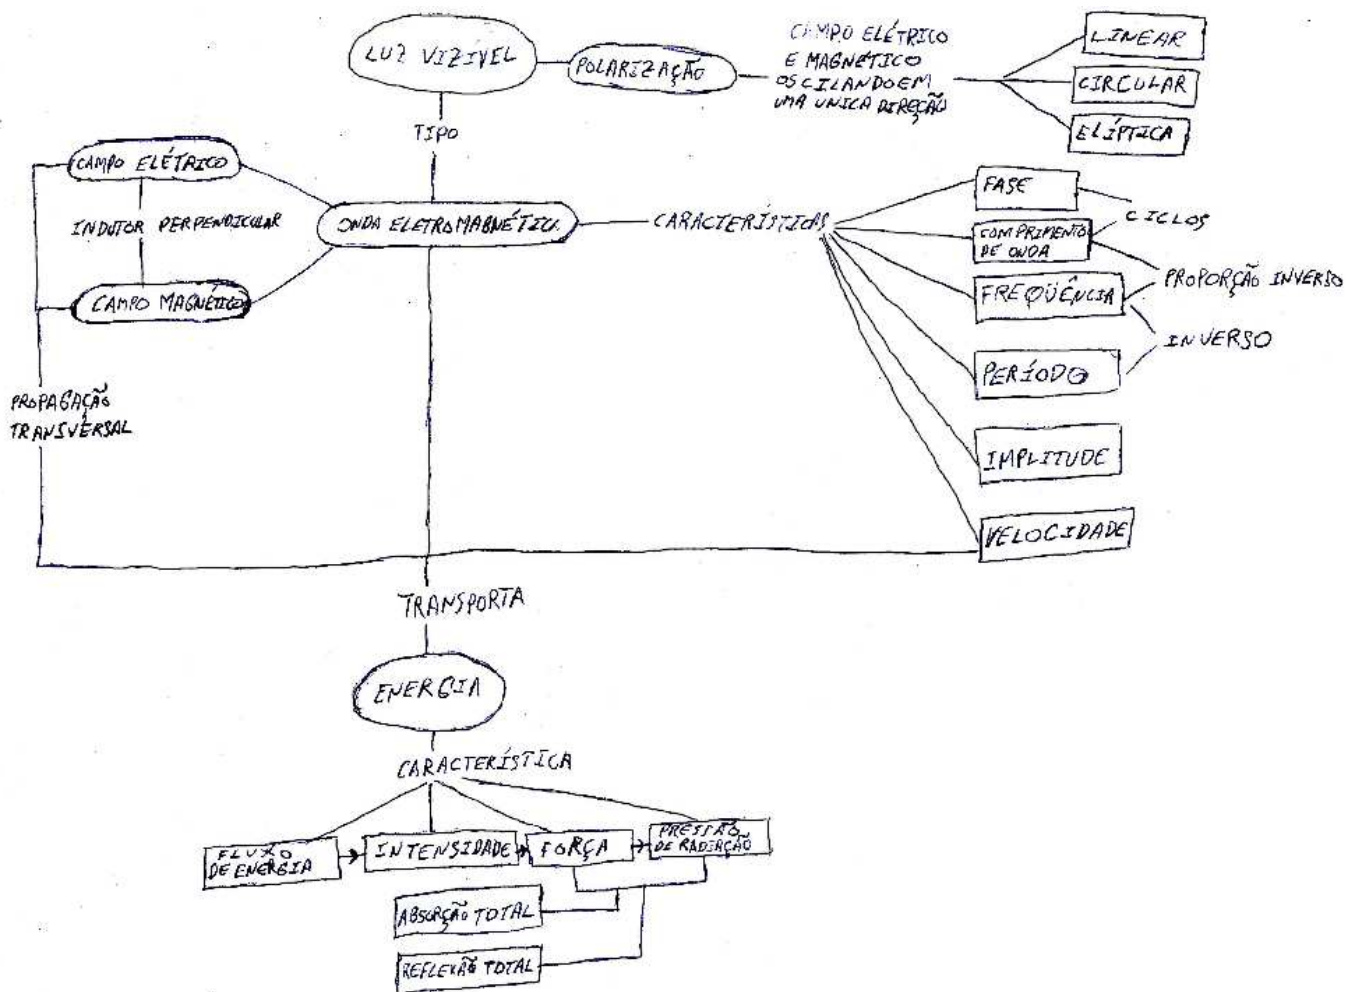 LUZ VIZÍVEL
POLARIZAÇÃO
CAMPO ELÉTRICO
E MAGNÉTICO
OSCILANDO EM
UMA UNICA DIREÇÃO
LINEAR
CIRCULAR
ELÍPTICA
TIPO
CAMPO ELÉTRICO
INDUTOR PERPENDICULAR
CAMPO MAGNÉTICO
ONDA ELETROMAGNÉTICA
CARACTERÍSTICAS
FASE
CICLOS
COMPRIMENTO
DE ONDA
PROPORÇÃO INVERSO
FREQÜÊNCIA
INVERSO
PERÍODO
IMPLITUDE
VELOCIDADE
PROPAGAÇÃO
TRANSVERSAL
TRANSPORTA
ENERGIA
CARACTERÍSTICA
FLUXO
DE ENERGIA
INTENSIDADE
FORÇA
PRESSÃO
DE RADIAÇÃO
ABSORÇÃO TOTAL
REFLEXÃO TOTAL